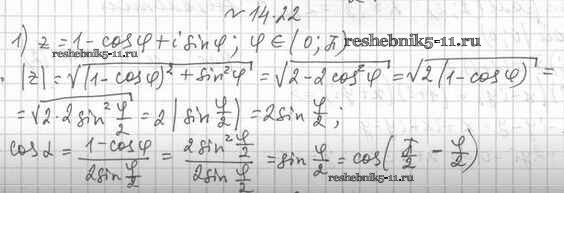 № 14.22
1) z = 1 - cosφ + i sinφ; φ ∈ (0; π)
reshebnik5-11.ru
|z| = √((1 - cosφ)² + sin²φ) = √(2 - 2cos²φ) = √(2(1 - cosφ)) =
= √(2·2sin² φ/2) = 2|sin φ/2| = 2sin φ/2;
cos α = (1 - cosφ)/(2sin φ/2) = (2sin² φ/2)/(2sin φ/2) = sin φ/2 = cos(π/2 - φ/2)
reshebnik5-11.ru